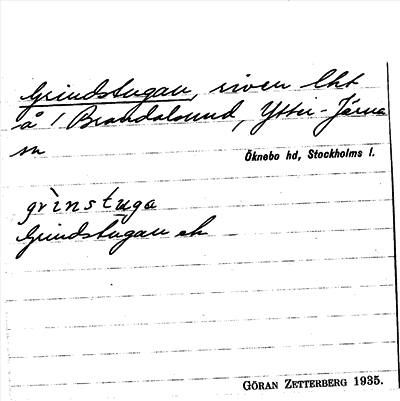 Grindstugan, riven lht
å / Brandalsund, Ytter-Järna
sn
Öknebo hd, Stockholms l.
grinstuga
Grindstugan ek
GÖRAN ZETTERBERG 1935.